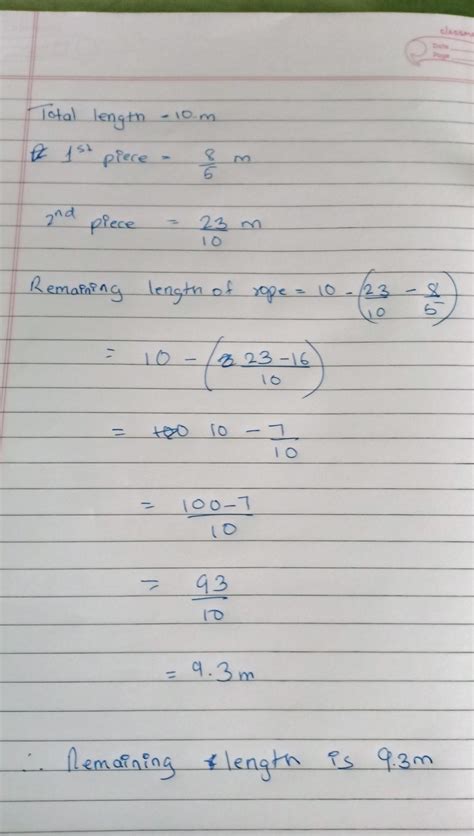 classmate
Date
Page
Total length = 10 m
1st piece = 8/5 m
2nd piece = 23/10 m
Remaining length of rope = 10 - (23/10 - 8/5)
= 10 - (23-16/10)
= 10 - 7/10
= 100-7/10
= 93/10
= 9.3m
∴ Remaining length is 9.3m